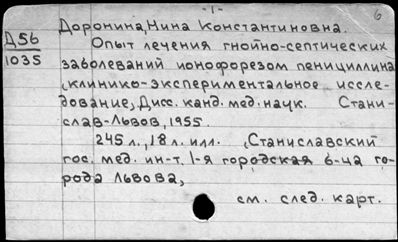 -1-
6
Доронина, Нина Константиновна.
Д56
1035
Опыт лечения гнойно-септических
заболеваний ионофорезом пенициллина
(клинико-экспериментальное иссле-
дование), Дисс. канд. мед. наук. Стани-
слав-Львов, 1955.
245 л., 18 л. илл. (Станиславский
гос. мед. ин-т. 1-я городская б-ца го-
рода Львова)
см. след. карт.